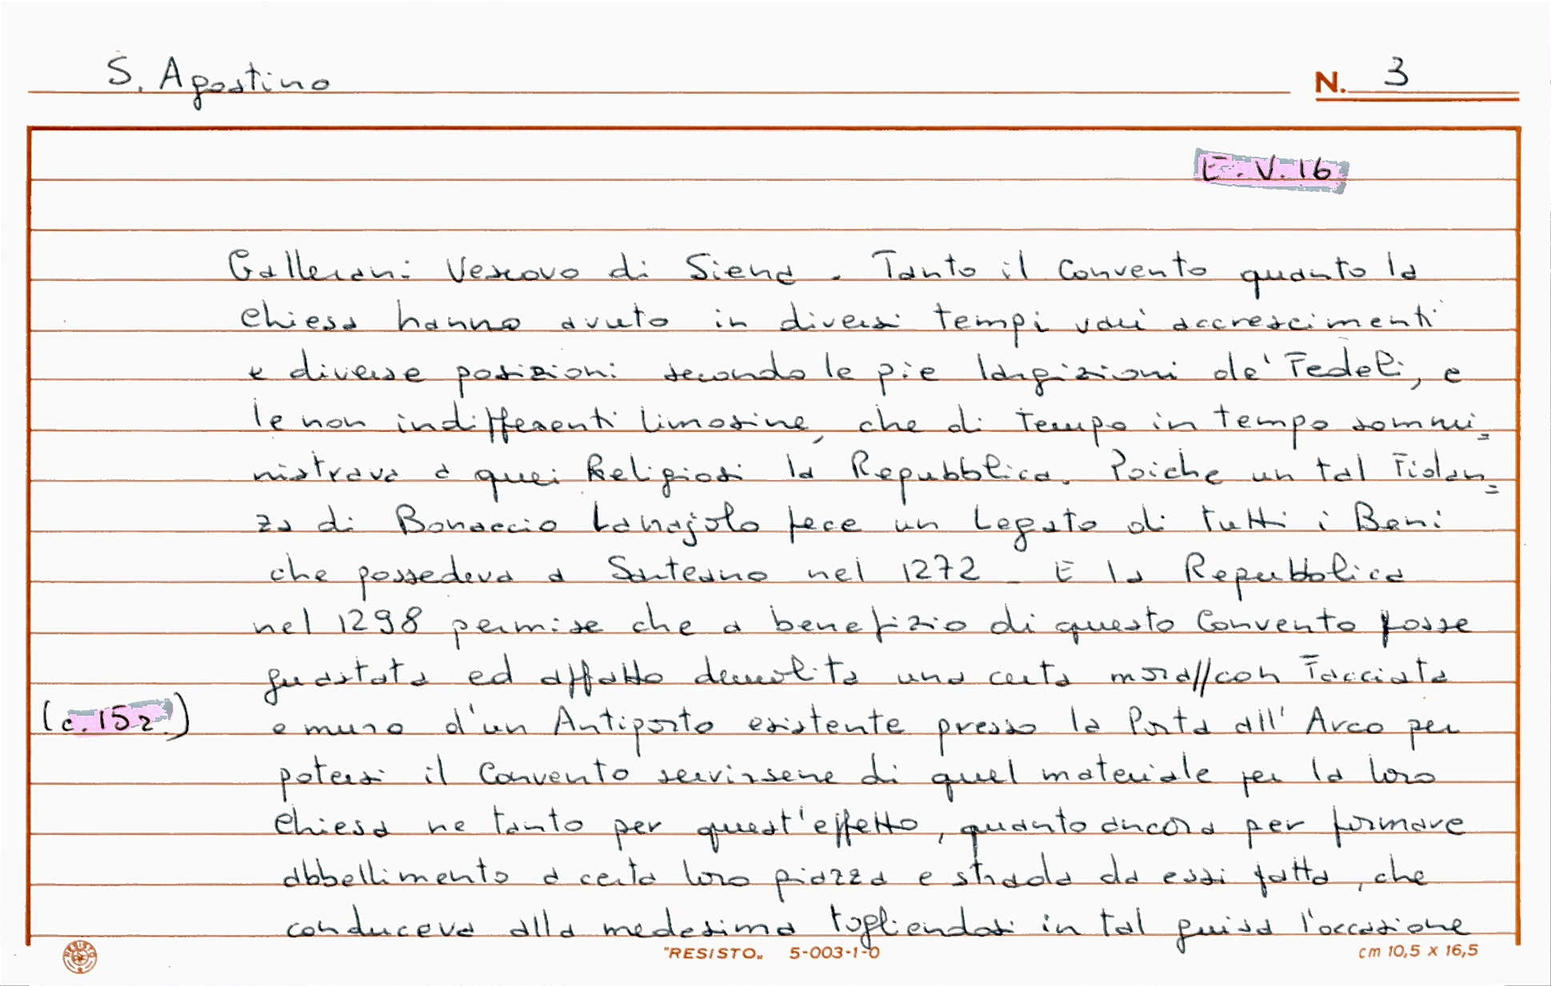 S. Agostino
N. 3
E.V.16
Gallerani Vescovo di Siena. Tanto il Convento quanto la
Chiesa hanno avuto in diversi tempi varii accrescimenti
e diverse posizioni secondo le pie largizioni de' Fedeli, e
le non indifferenti limosine, che di tempo in tempo sommi=
nistrava a quei Religiosi la Repubblica. Poiche un tal Fidan=
za di Bonaccio Lanajolo fece un Legato di tutti i Beni
che possedeva a Santeano nel 1272 - E la Repubblica
nel 1298 permise che a benefizio di questo Convento fosse
guastata ed affatto demolita una certa //con Facciata
(c.152.) e muro d'un Antiporto esistente presso la Porta all'Arco per
potersi il Convento servirsene di quel materiale per la loro
Chiesa ne tanto per quest'effetto, quanto ancora per formare
abbellimento a certa loro piazza e strada da essi fatta, che
conduceva alla medesima togliendosi in tal guisa l'occasione
RESISTO
"RESISTO„ 5-003-1-0
cm 10,5 x 16,5